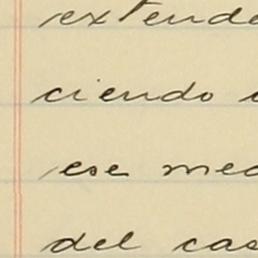 extende
ciendo
ese med
del cas